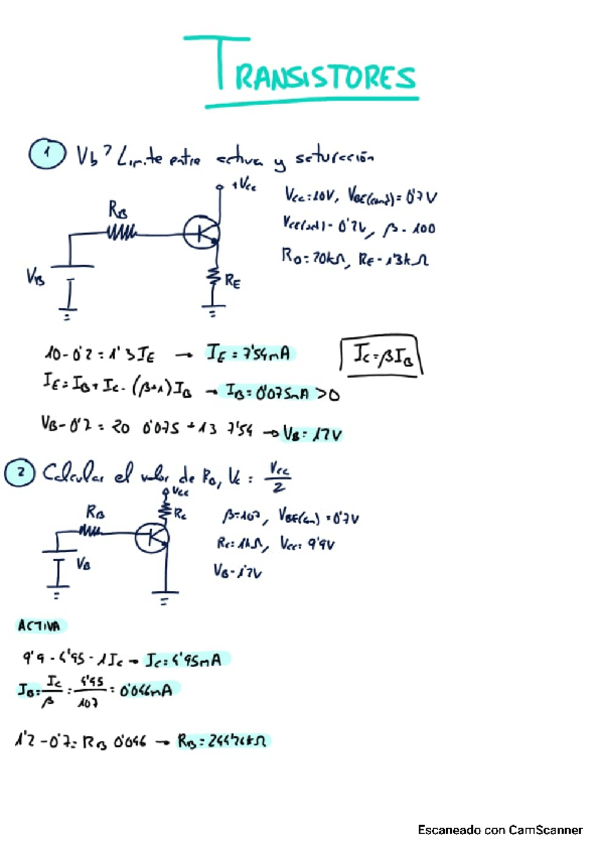 TRANSISTORES
1 Vb? Limite entre activa y saturación
+Vcc
RB
VB
RE
Vcc=10V, VBE(cond)=0'7V
VCE(sat)=0'2V, β=100
RB=20kΩ, RE=1'3kΩ
10-0'2=1'3IE → IE=7'54mA
IC=βIB
IE=IB+IC=(β+1)IB → IB=0'075mA>0
VB-0'7=20 0'075+1'3 7'54 → VB=12V
2 Calcular el valor de RB, VC = Vcc/2
Vcc
RB
RC
VB
β=107, VBE(on)=0'7V
RC=1kΩ, Vcc=9'9V
VB=1'2V
ACTIVA
9'9-4'95=1IC → IC=4'95mA
IB=IC/β=4'95/107=0'046mA
1'2-0'7=RB 0'046 →
Escaneado con CamScanner